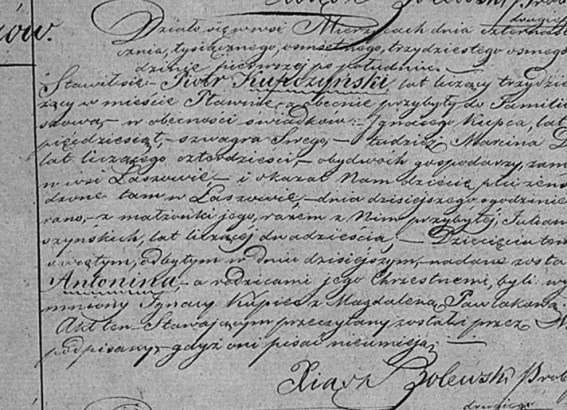 ków.
Działo się w wsi Mierzycach dnia czternast
cznia, tysiącznego, osmsetnego, trzydziestego osmego
dzinie pierwszej po południu.
Stawił się Piotr Kupczyński, lat liczący trzydzie
żący w mieście a obecnie przybyły do Familii
szowa, w obecności świadków: Ignacego Kupca, lat
pięćdziesiąt, szwagra Swego, tudzież Marcina D
lat liczącego czterdzieści, obydwóch gospodarzy, zam
w wsi Laszowie, i okazał Nam dziecię płci żeńs
dzone tam w Laszowie, dnia dzisiejszego o godzinie
rano, z małżonki jego, razem z Nim przybyłej, Julian
szyńskich, lat liczącej dwadzieścia, Dziecięciu tem
świętym, odbytym w dniu dzisiejszym, nadane zosta
Antonina, a rodzicami jego Chrzestnemi, byli wy
mniony Ignacy Kupiec z Magdaleną Pawlaka
Akt ten Stawającym przeczytany został przez N
podpisany, gdyż oni pisać nieumieją.
Xiądz Bolewski Prob